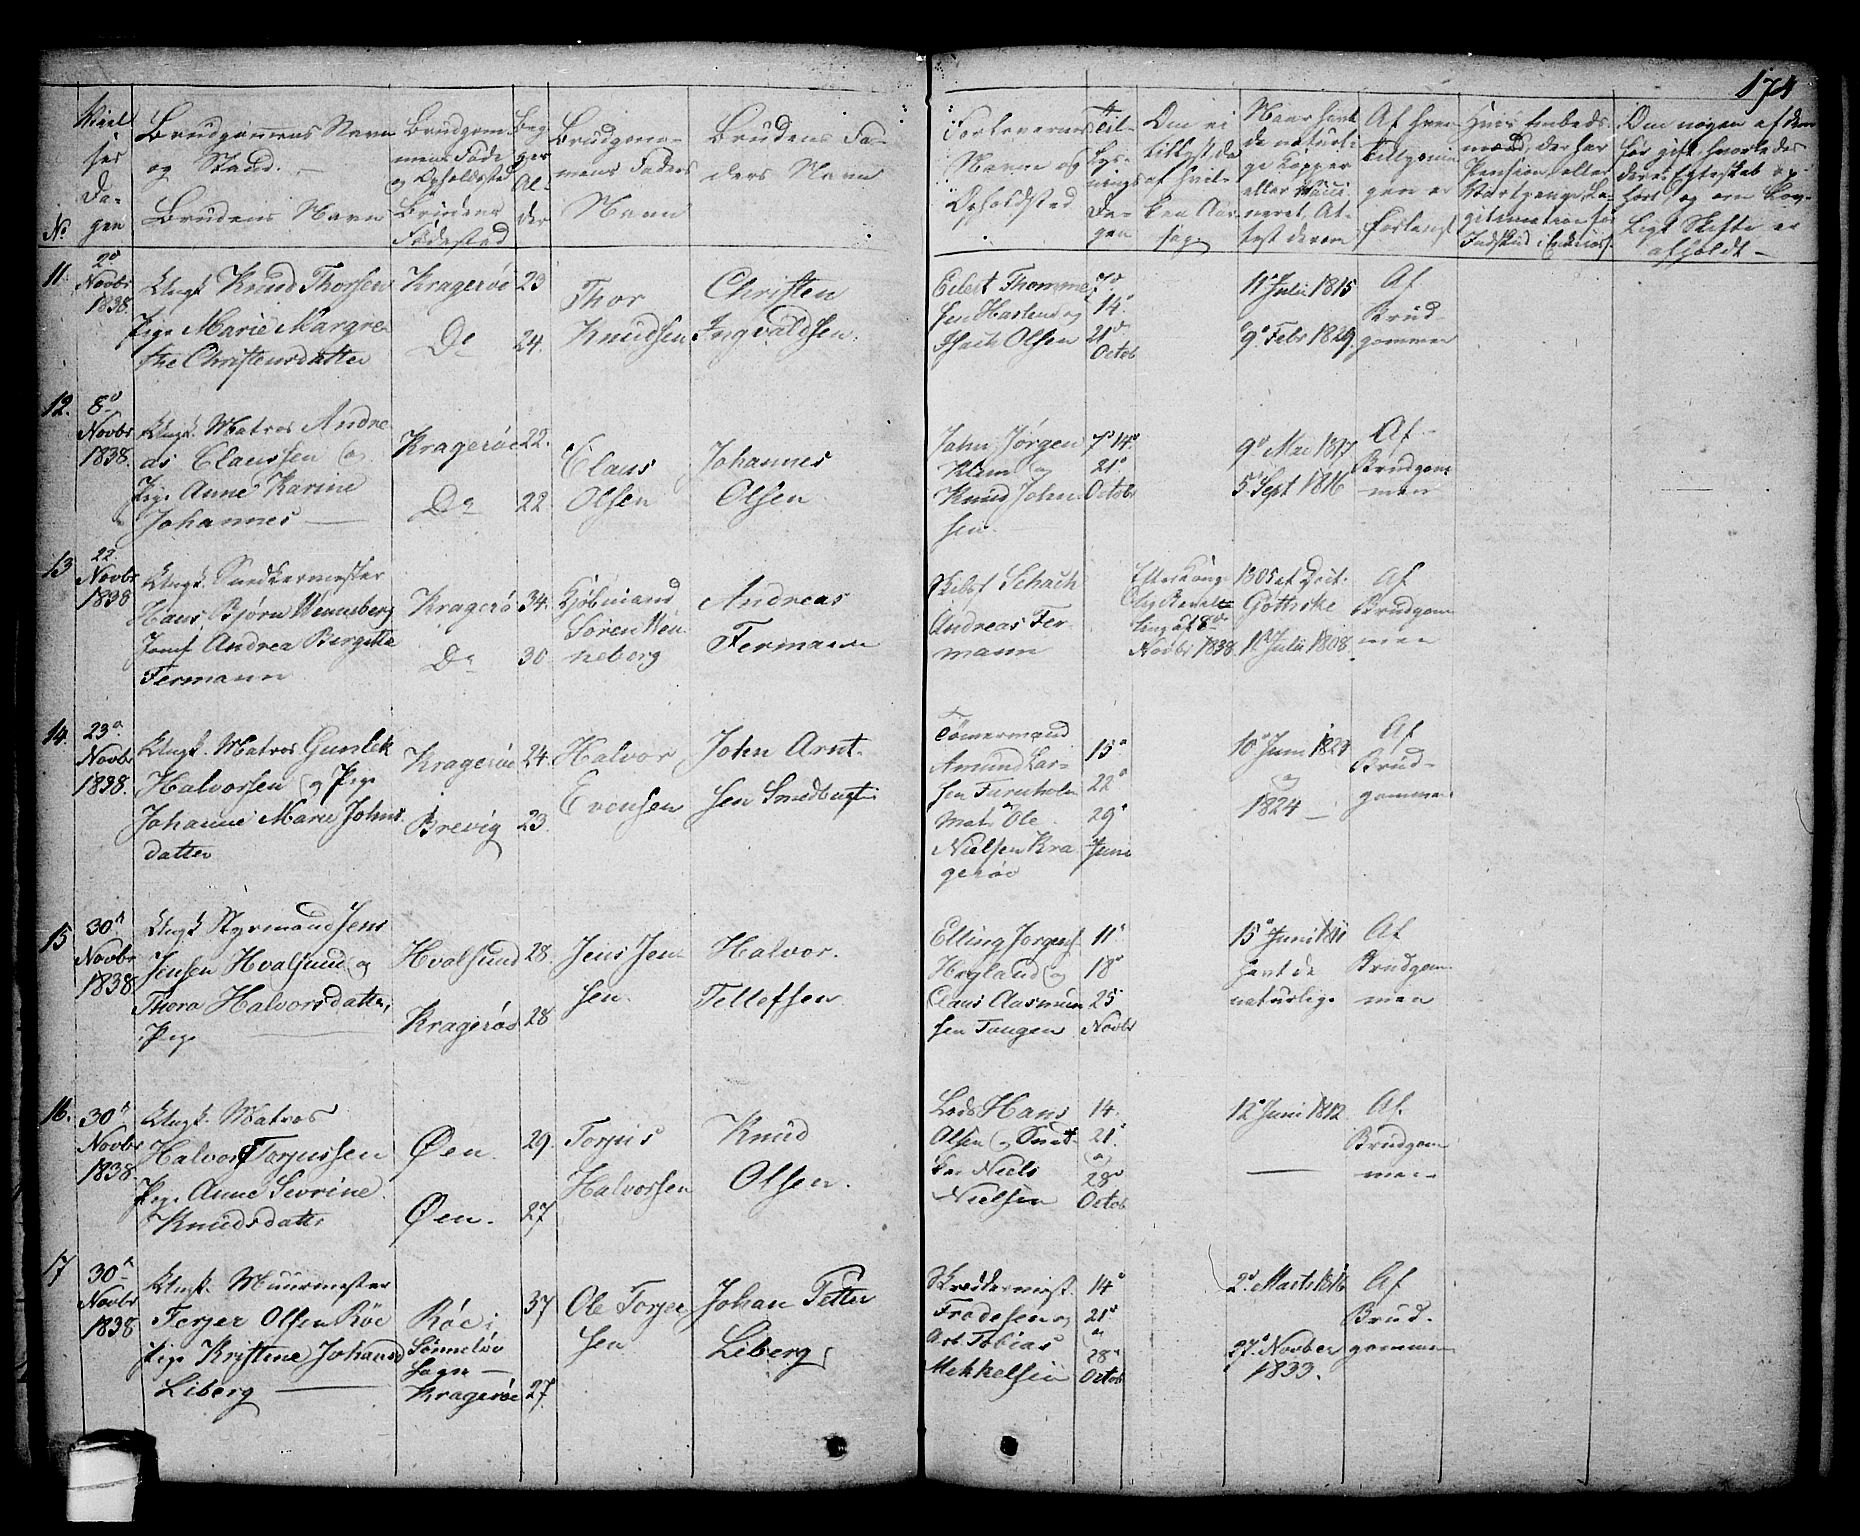 174
No
Viel-
ses
Da-
gen
Brudgommens Navn
og Stand. -
Brudens Navn
Brudgom-
mens Føde
og Opholdssted
Brudens
Fødested
Beg-
ges
Al-
der
Brudgom-
mens Faders
Navn
Brudens Fa-
ders Navn
Forlovernes
Navne og
Opholdsted
Til-
lys-
nings
Da-
gen
Om ei
tillyst, da
af hvil-
ken Aar-
sag
Naar havt
de naturli-
ge Kopper
eller Vacci-
neret, At-
test derom
Af hvem
gen er
forlangt
Om nogen af dem
før gift hvorledes
deres Egteskab op-
hørt, og om Lov-
ligt Skifte er
afholdt -
11.
2den
Novbr
1838.
Ungk. Knud Thorsen
Pige Marie Margre-
the Christensdatter
Kragerøe 23
Do 24.
Thor
Knudsen
Christen
Ingvaldsen.
Eilert Thomme-
sen Hasland og
Isach Olsen
7de
14de
21de
Octob
11te Julii 1815
9de Febr 1829.
Af
Brud-
gommen
12.
8de
Novbr
1838.
Ungk. Matros Andre-
as Claussen og
Pige Anne Karine
Johannes —
Kragerøe 22.
Do 22.
Claus
Olsen
Johannes
Olsen
John Jørgen
og
Knud John-
sen.
7de 14de
21de
Octob
9de Mai 1817
5 Sept 1816
Af
Brudgom-
men
13
22.
Novbr
1838
Ungk. Snedkermester
Hans Bjørn Wenneberg
Jomf. Andrea Birgitte
Fermann
Kragerø 34.
Do 30.
Kjøbmand
Søren Wen-
neberg
Andreas
Fermann
Skibsf Schach
Andreas Fer-
mann
Efter Konge-
lig Bevil-
ling af 8de
Novbr 1838.
1805 at Doct.
Gottliche
12 Julii 1808.
Af
Brudgom-
men
14.
23de
Novbr
1838.
Ungk. Matros Gunlek
Halvorsen og Pige
Johanne Marie Johns-
datter
Kragerøe 24.
Brevig 23.
Halvor
Evensen
John Arnt-
sen Smedbugt
Tømermand
Amund Lar-
sen Furuholm
Mat. Ole
Nielsen Kra-
gerøe
15de
22de
29de
Juni
10de Juni 1823
og
1824 —
Af
Brud-
gommen
15
30te
Novbr
1838
Ungk Styrmand Jens
Jensen Hvalsund og
Thora Halvorsdatter,
Pige —
Hvalsund 28.
Kragerøe 28
Jens Jen-
sen.
Halvor.
Tellefsen.
Elling Jørgens.
Hegland og
Claus Aasmun-
sen Tangen
11te
18de
25
Novbr
15de Juni 1811
havt de
naturlige
Af
Brudgom-
men
16.
30te
Novbr
1838.
Ungk. Matros
Halvor Torjussen
Pige Anne Sevrine
Knudsdatter
Øen. 29.
Øen. 27
Torjus
Halvorsen
Knud
Olsen.
Lods Hans
Olsen og Sned-
ker Niels
Nielsen
14.
21de
og
28de
Octob
12te Juni 1812
—
Af
Brudgom-
men
17
30te
Novbr
1838
Ungk. Muurmester
Terjer Olsen Röe
Pige Kristene Johansd
Liberg —
Röe i
Sönneløv
Sogn —
Kragerøe
37
27.
Ole Torjer-
sen
Johan Petter
Liberg
Skreddermest.
Fradesen og
Arb. Tobias
Mekkelsen
14de
21de
og
28de
Octob
2de Marts 1816
27de Novber
1833.
Af
Brud-
gommen